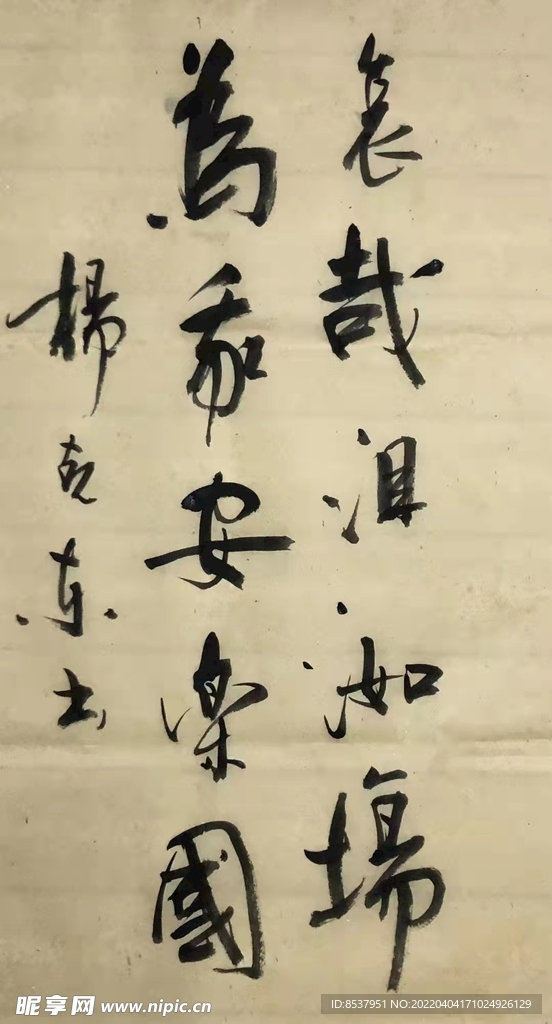 哀哉沮洳場
為我安樂國
楊克东书
昵享网 www.nipic.cn
ID:8537951 NO:20220404171024926129